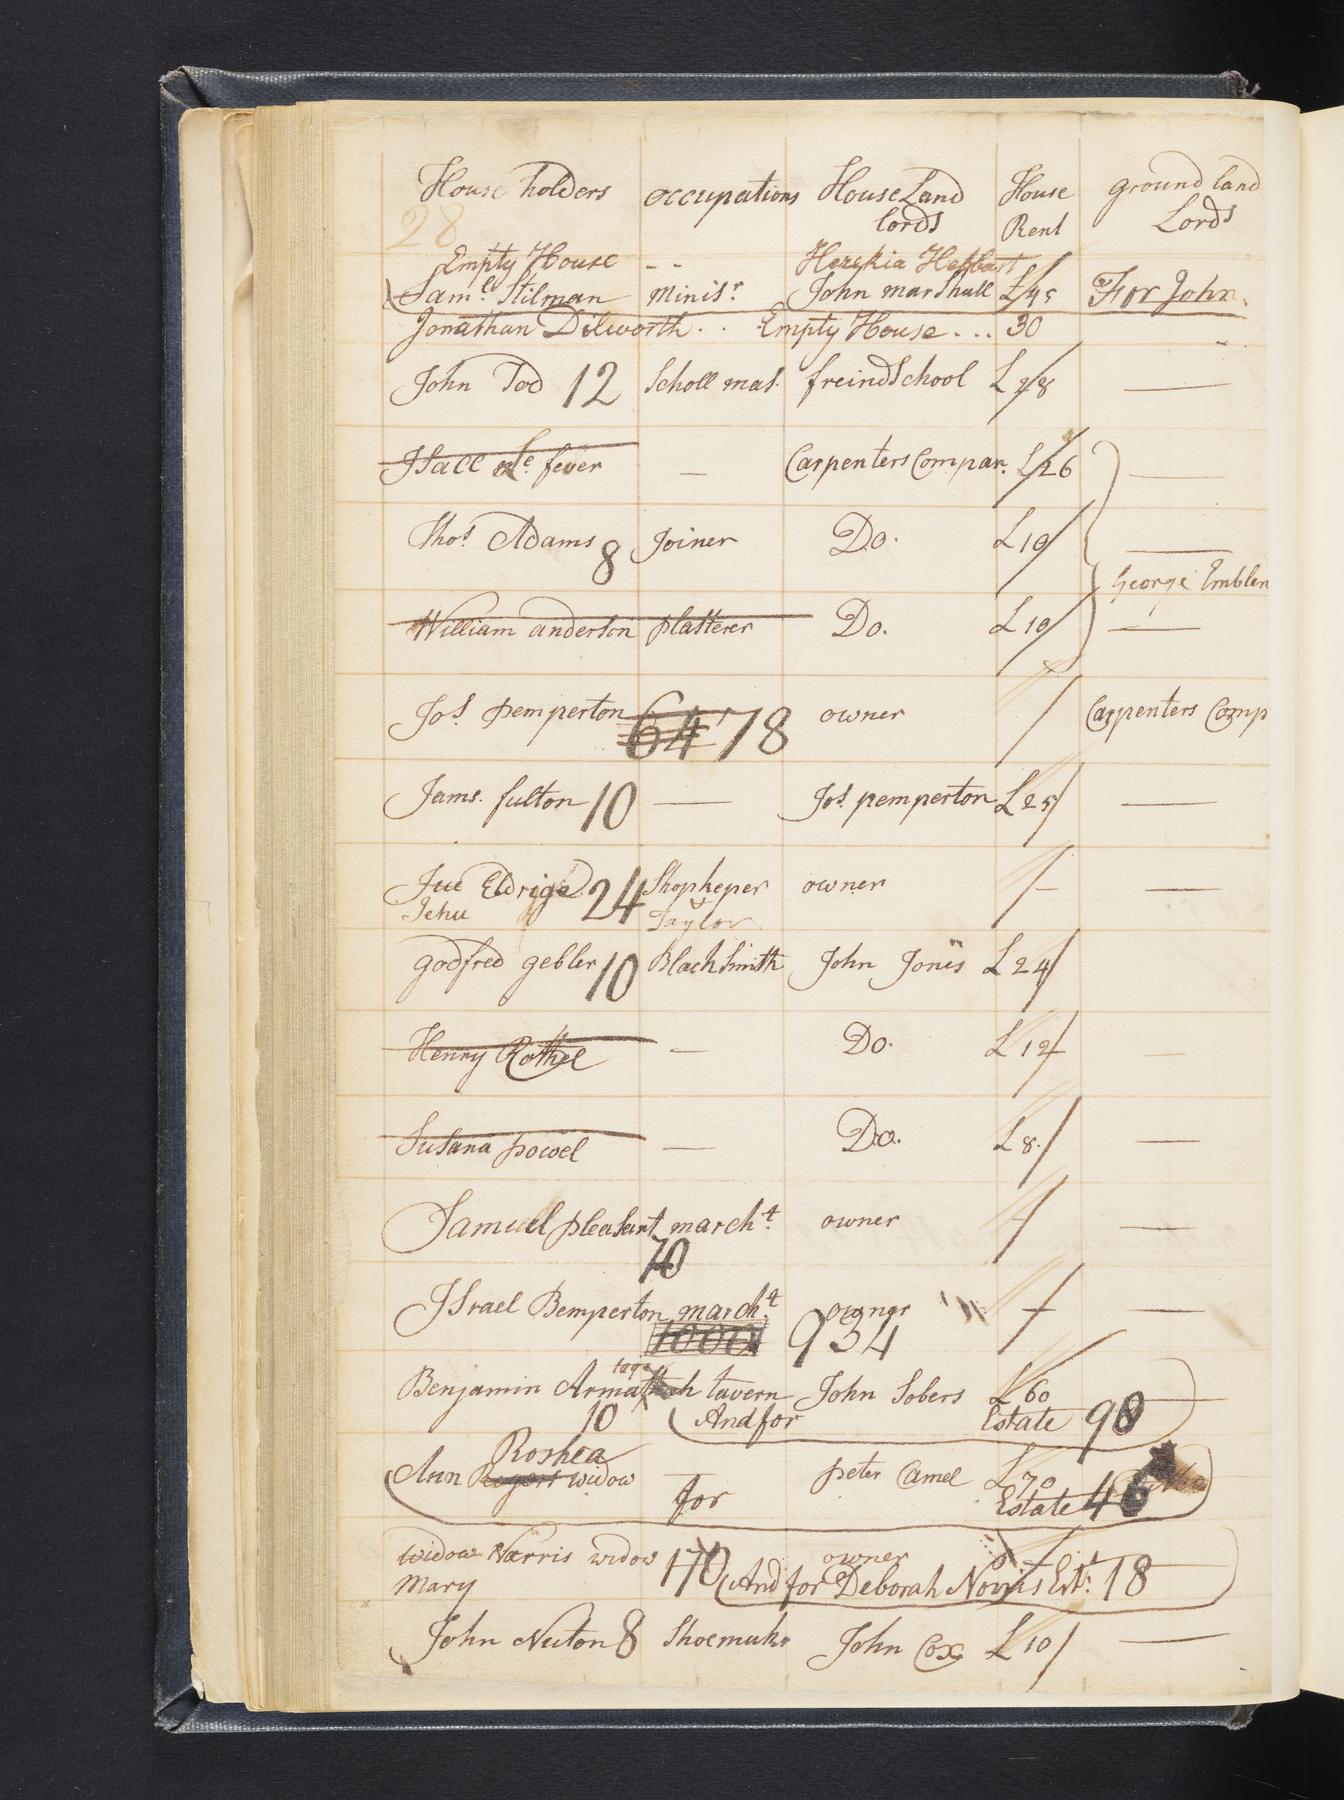 House holders occupations House Land lords House Rent ground land Lords
28
Empty House - - Hezekia Hebbart
Sam.ll Stilman Minisr. John marshall £45 For John
Jonathan Dilworth . . Empty House . . . 30
John Tod 12 Scholl mas. freind School £28 —
Isacc le fever — Carpenters Compar. £26 —
Thos. Adams 8 Joiner Do. £10 —
George Emblen
William anderson plasterer Do. £10 —
Jos. pemperton 64 78 owner Carpenters Comp
Jams. fulton 10 — Jos. pemperton £25 —
Jue Eldrige 24 Shopkeper owner — —
Jehu Taylor
godfred gebler 10 Blacksmith John Jones £24
Henry Rothel — Do. £12 —
Susana powel — Do. £8. —
Samuel pleasant march.t owner —
70
Israel Bemperton march.t owner —
1000 934
tage
Benjamin Arma h tavern John Sobers £60
10 And for Estate 90
Roshea
Ann widow — peter Camel £70
for Estate 46
widow Norris widow 170 owner
Mary And for Deborah Norris Est: 18
John Nuton 8 Shoemakr John Cox £10 —